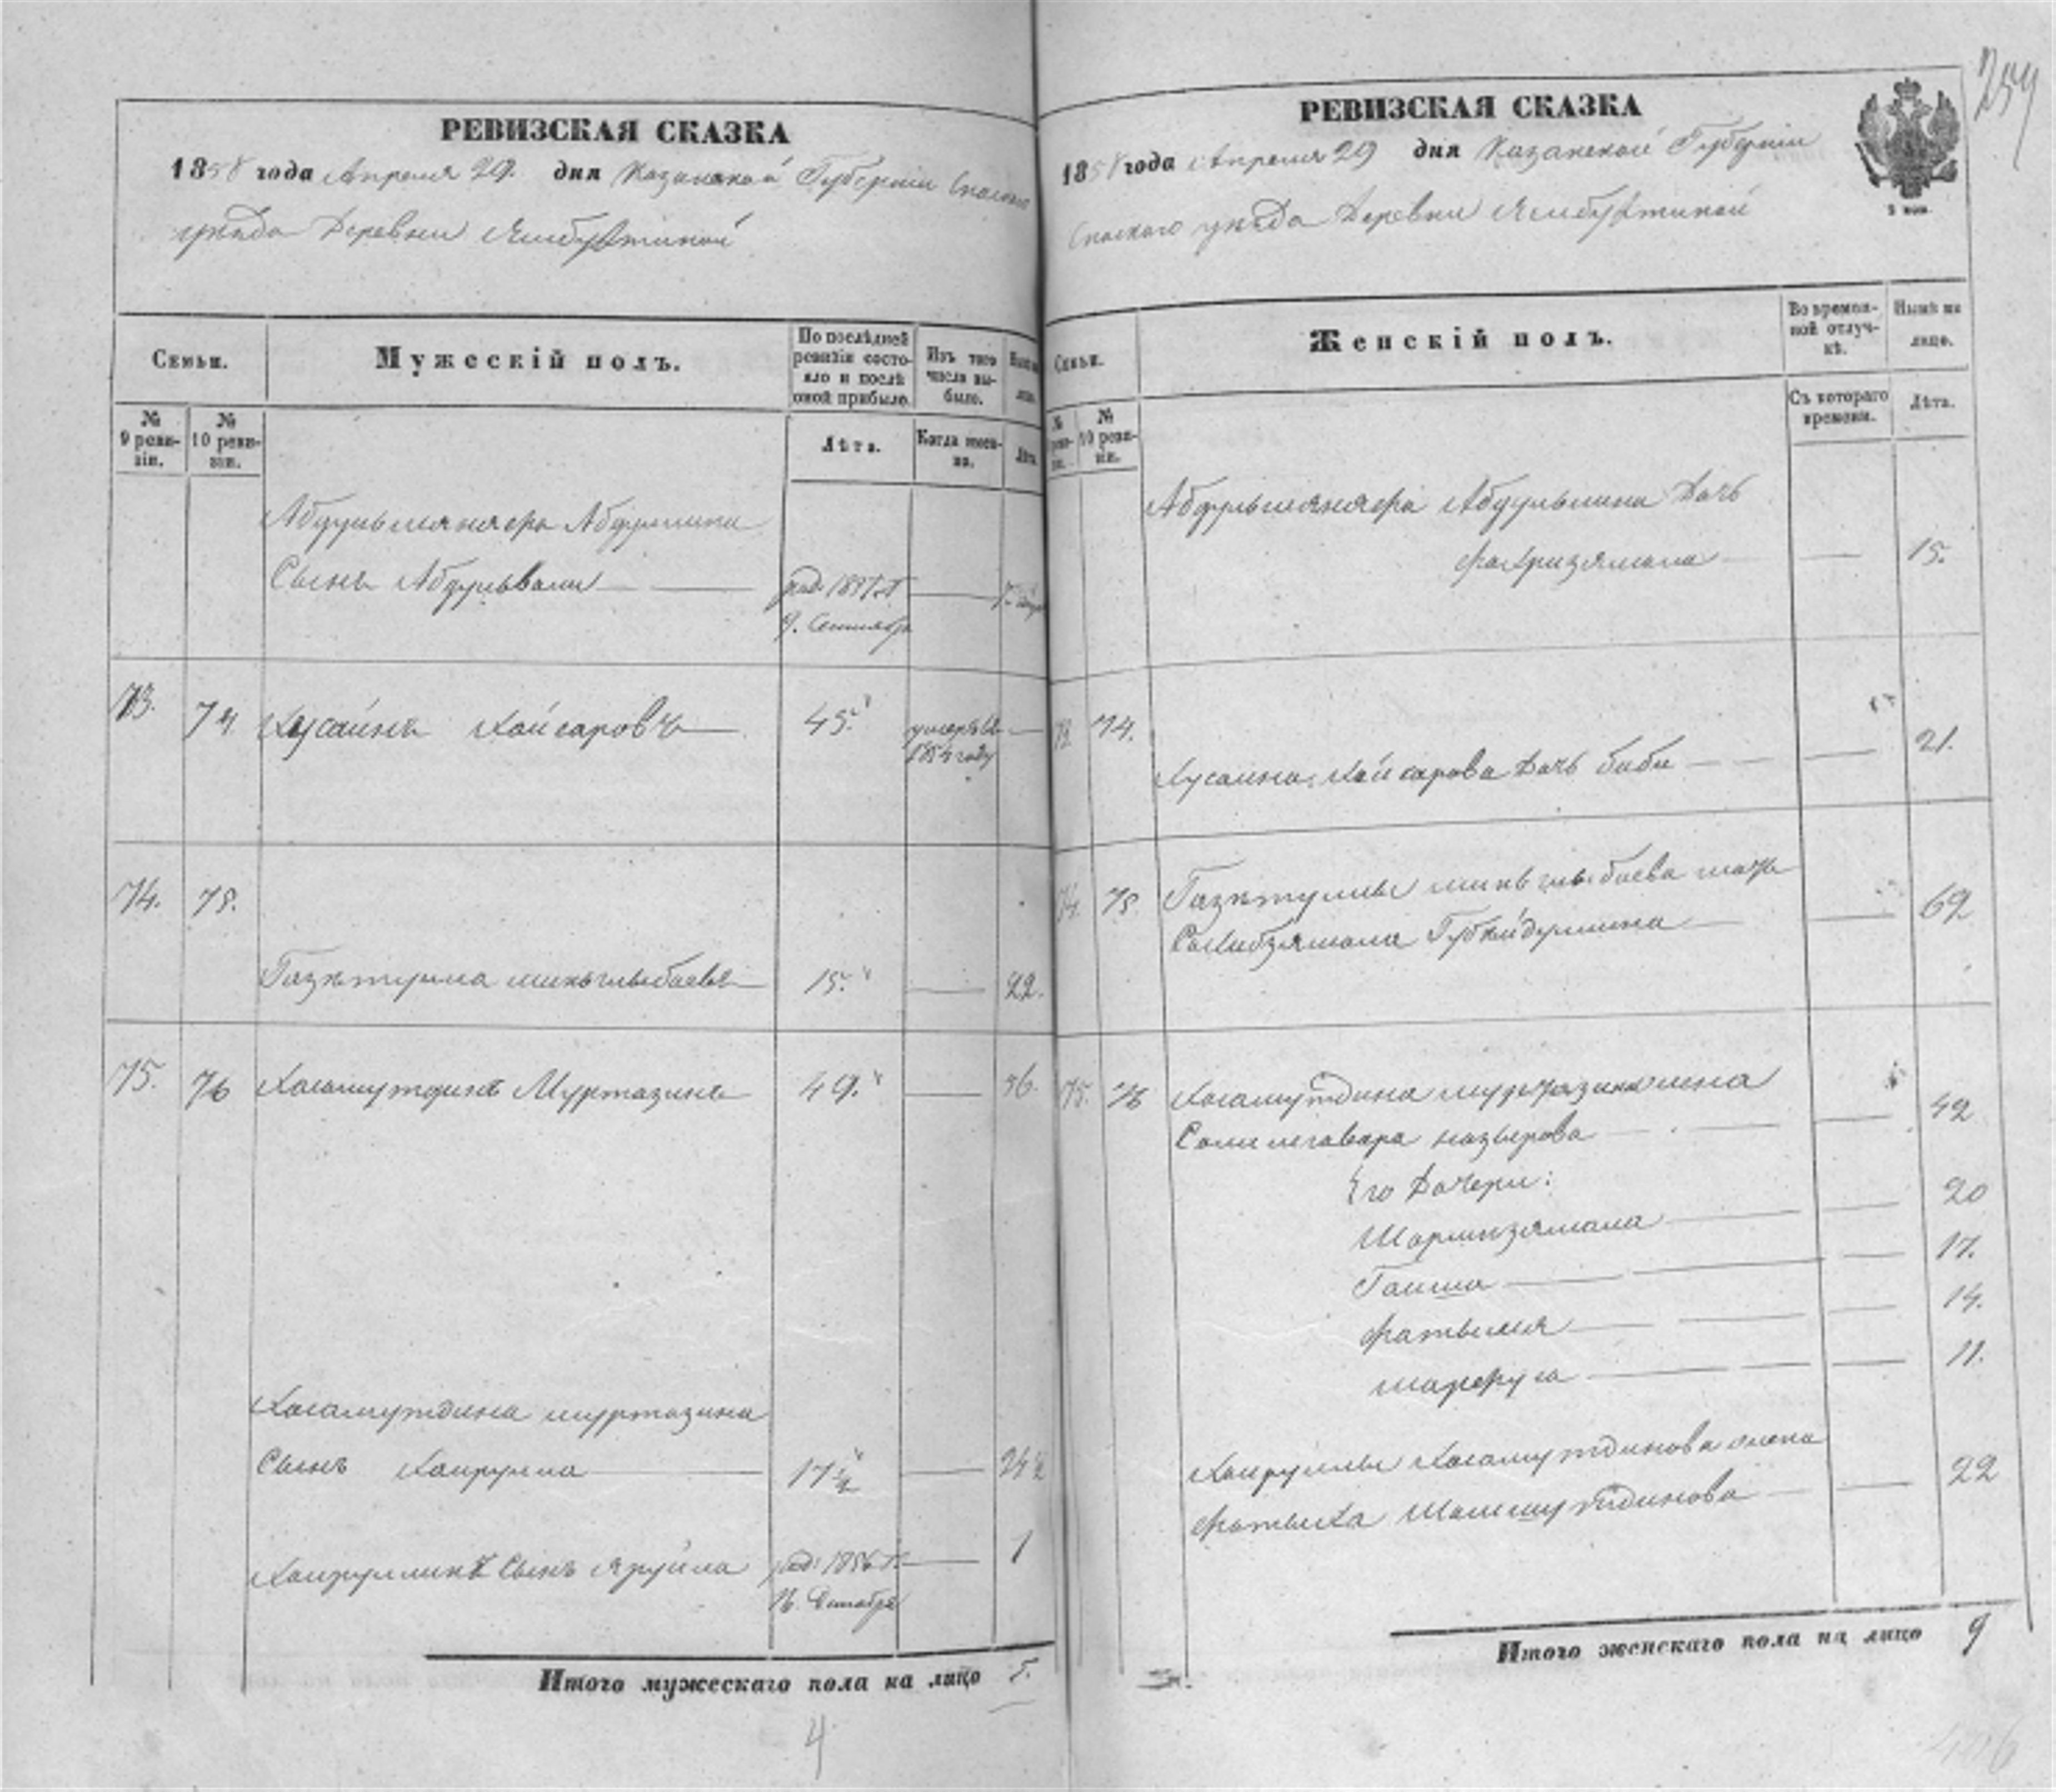 259
РЕВИЗСКАЯ СКАЗКА
1858 года Апреля 29. дня Казанской Губернии Спаскаго
уѣзда Деревни Ямбухтиной
Семьи.
Мужескій полъ.
По послѣдней ревизіи состояло и послѣ оной прибыло.
Изъ того числа выбыло.
Нынѣ на лицо.
№ 9 ревизіи.
№ 10 ревизіи.
Лѣта.
Когда именно.
Лѣта.
Абдульменяфа Абдулмина
Сынъ Абдульвали
род: 1857 г.
9. Сентября
73. 74 Хусаинъ Кайсаровъ 45. умеръ въ
1854 году
74. 75.
Газетулла минглыбаевъ 15. 22.
75. 76 Хасамутдинъ Муртазинъ 49. 56.
Хасамутдина муртазина
Сынъ Хайрулла 17 ½ 24 ½
Хайруллинъ Сынъ Яруйла род: 1856 г. 1
16. Декабря
Итого мужескаго пола на лицо 5.
4
РЕВИЗСКАЯ СКАЗКА
1858 года Апреля 29 дня Казанской Губернии
Спаскаго уѣзда Деревни Ямбухтиной
Семьи.
Женскій полъ.
Во временной отлучкѣ.
Нынѣ на лицо.
№ 10 ревизіи.
Съ котораго времени.
Лѣта.
Абдульменяфа Абдульмина Дочь
Фахризямала 15.
73 74.
Хусаина Кайсарова Дочь Биби 21.
74. 75. Газетуллы минглыбаева мать
Сахибзямала Губайдуллина 69
75. 76 Хасамутдина муртазина жена
Салилегавара назырова 42
Его Дочери:
Шарипзямала 20
Гайша 17.
Фатыма 14.
11.
Хайруллы Хасамутдинова жена
Фатыха Шамсутдинова 22
Итого женскаго пола на лицо 9